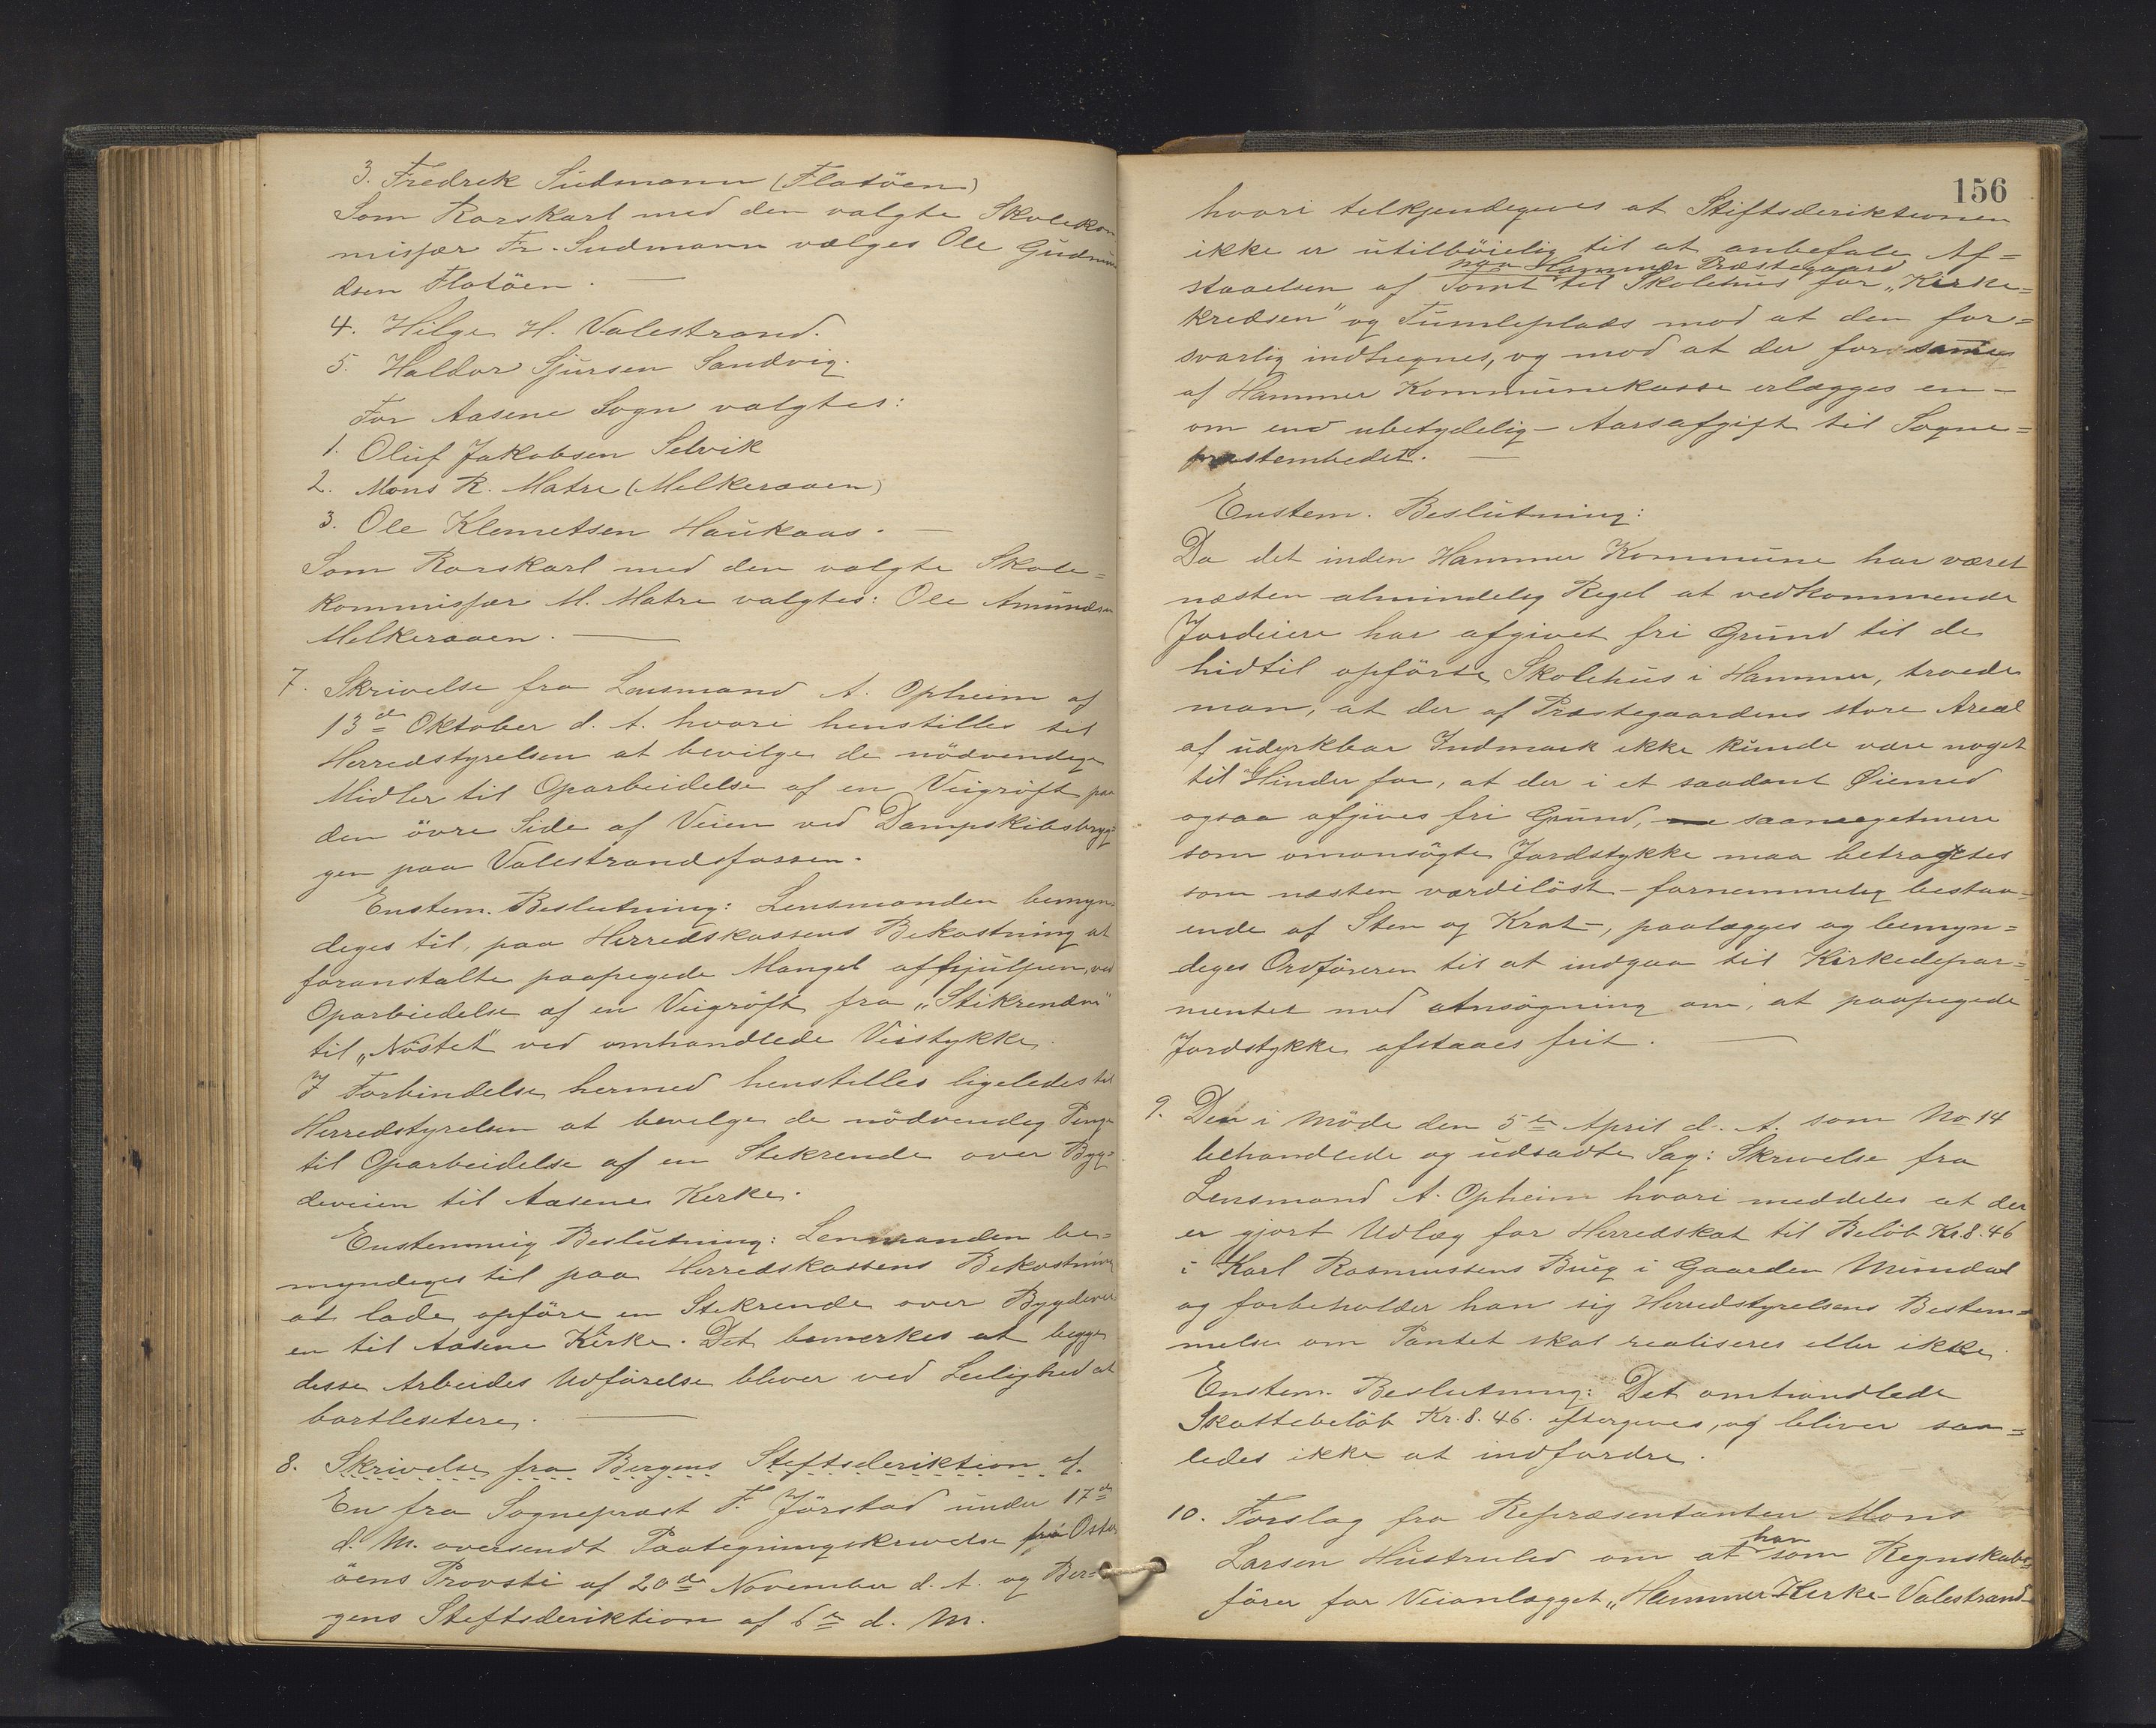 3. Fredrek Sudmann (Flatöen)
Som Rorskarl med den valgte Skolekom
missær Fr. Sudmann vælges Ole Gudmun
dsen Flatöen.
4. Hilge H. Valestrand.
5. Haldor Sjursen Sandvig.
For Aasene Sogn valgtes:
1. Oluf Jakobsen Selvik
2. Mons R. Matre (Melkeraaen)
3. Ole Klemetsen Haukaas.
Som Rorskarl med den valgte Skole=
kommissær M. Matre valgtes: Ole Amundsen
Melkeraaen.
7. Skrivelse fra Lensmand A. Opheim af
13de Oktober d. A. hvori henstilles til
Herredstyrelsen at bevilge de nödvendige
Midler til Oparbeidelse af en Veigröft paa
den övre Side af Veien ved Dampskibsbryg=
gen paa Valestrandsfossen.
Enstem. Beslutning: Lensmanden bemyn=
deges til, paa Herredskassens Bekostning at
foranstalte paapegede Mangel afhjulpen, ved
Oparbeidelse af en Veigröft fra „Stikrenden"
til „Nöstet" ved omhandlede Veistykke.
I Forbindelse hermed henstilles ligeledes til
Herredstyrelsen at bevelge de nödvendig Penge
til Oparbeidelse af en Stekrende over Byg=
deveien til Aasene Kerke.
Enstemmig Beslutning: Lensmanden be=
myndeges til paa Herredskassens Bekostning
at lade opföre en Stekrende over Bygdevei
en til Aasene Kirke. Det bemerkes at begge
desse Arbeides Udförelse bliver ved Leilighed at
bortlesetere.
8. Skrivelse fra Bergens Steftsderiktion af.
En fra Sogneprest F. Jörstad under 17de
d. M. oversendt Paategningskrivelse fra Oster
öens Provsti af 20de November d. A. og Ber=
gens Steftsderiktion af 6te d. M.
156
hvori telkjendegeves at Stiftsderiktionen
ikke er utilböielig til at anbefale Af=
paa Hammer Præstegaard
staaelsen af Tomt til Skolehus for „Kirke=
kredsen" og Tumleplads mod at den for=
svarlig indhegnes, og mod at der for samme
af Hammer Kommunekasse erlægges en -
om end ubetydelig - Aarsafgift til Sogne=
prestembedet.
Enstem. Beslutning:
Da det inden Hammer Kommune har været
næsten almindelig Regel at vedkommende
Jordeiere har afgivet fri Grund til de
hidtil opförte Skolehus i Hammer, troede
man, at der af Præstegaardens store Areal
af udyrkbar Indmark ikke kunde være noget
til Hinder for, at der i et saadant Øiemed
ogsaa afgives fri Grund, saameegetmere
som omansögte Jordstykke maa betragtes
som næsten værdilöst - fornemmelig bestaa=
ende af Sten og Krat -, paalægges og bemyn=
deges Ordföreren til at indgaa til Kirkedepar=
mentet med Ansögning om, at paapegede
Jordstykke afstaaes frit.
9. Den i Möde den 5te April d. A. som No 14
behandlede og udsadte Sag: Skrivelse fra
Lensmand A. Opheim hvori meddeles at der
er gjort Udlæg for Herredskat til Belöb Kr. 8.46
i Karl Rasmussens Bueg i Gaarden Mundal
og forbeholder han sig Herredstyrelsens Bestem=
melse om Pantet skal realiseres eller ikke.
Enstem. Beslutning: Det omhandlede
Skattebelöb Kr. 8.46. eftergeves, og bliver saa=
ledes ikke at indfordre.
10. Forslag fra Repræsentanten Mons
han
Larsen Hustruled om at som Regnskabs=
förer for Veianlægget „Hammer Kerke-Valestrand-